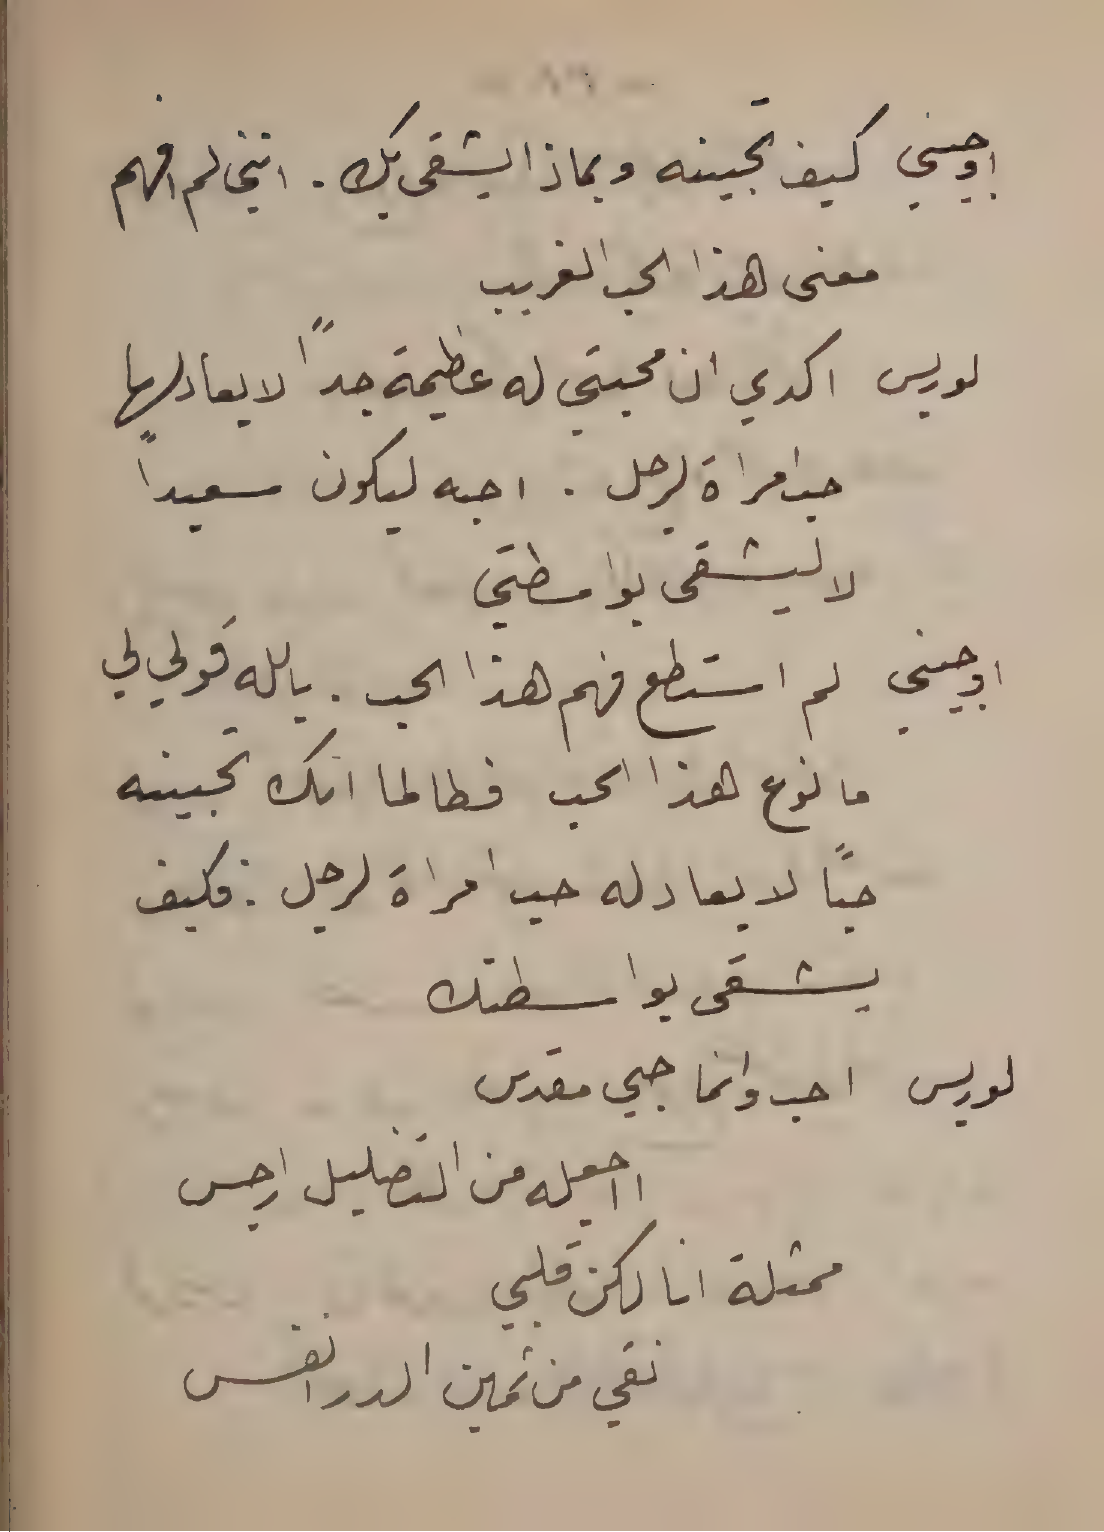 اوجيني كيف تحبينه وبماذا يشقى بك. انني لم افهم
معنى هذا الحب الغريب
لوريس اكدي ان محبتي له عظيمة جداً لا يعادلها
حب امراة لرجل . احبه ليكون سعيداً
لا ليشقى بواسطتي
اوجيني لم استطع فهم هذا الحب . بالله قولي لي
ما نوع هذا الحب فطالما انك تحبينه
حبًا لا يعادله حب امراة لرجل : فكيف
يشقى بواسطتك
لوريس احب وانما حبي مقدس
ااجعله من التضليل ارجس
ممثلة انا لكن قلبي
نقي من ثمين الدر انفس